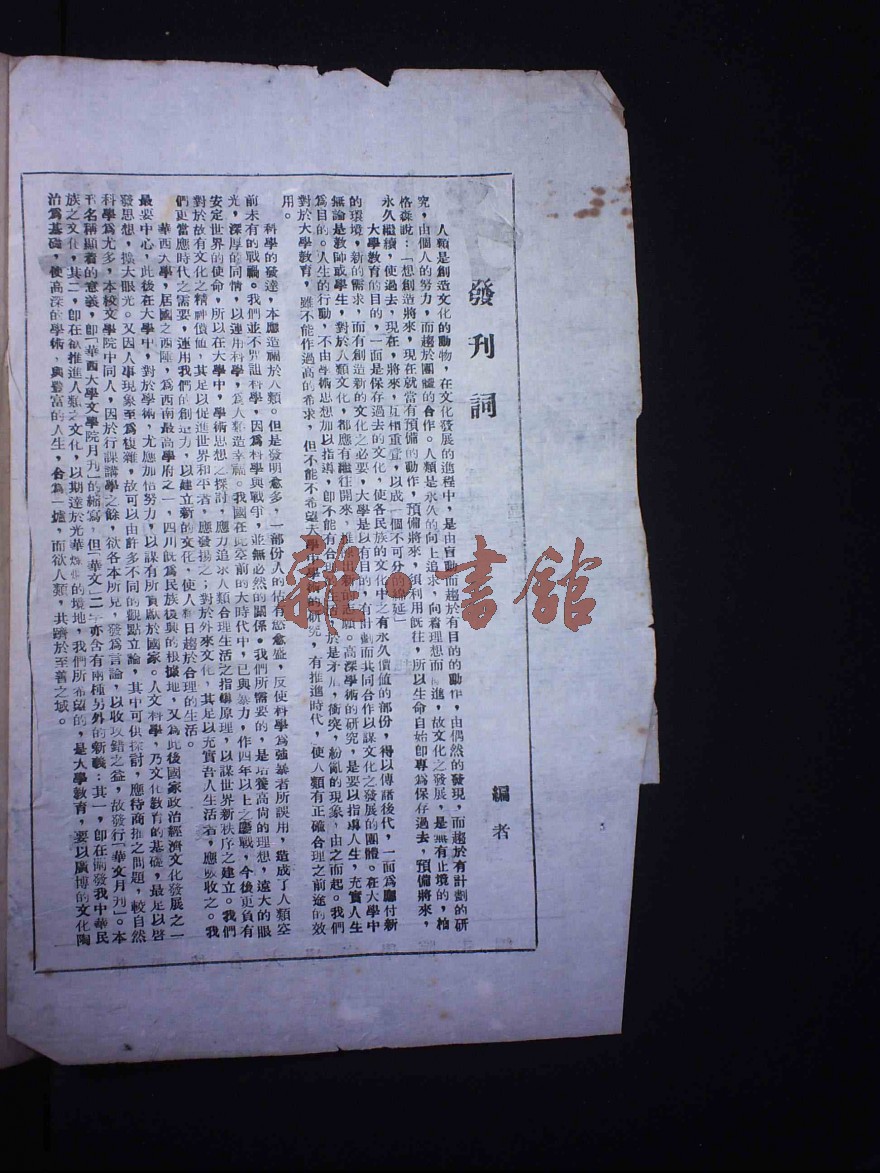 發刊詞
編者
人類是創造文化的動物，在文化發展的進程中，是由盲動而趨於有目的的動作，由偶然的發現，而趨於有計劃的研
究，由個人的努力，而趨於團體的合作。人類是永久的向上追求，向着理想而 進，故文化之發展，是無有止境的，柏
格森說：「想創造將來，現在就當有預備的動作，預備將來，須利用既往，所以生命自始即專為保存過去，預備將來，
永久繼續，使過去，現在，將來，互相重疊，以成一個不可分的綿延」
大學教育的目的，一面是保存過去的文化，使各民族的文化中之有永久價値的部份，得以傳諸後代，一面為應付新
的環境，新的需求，而有創造新的文化之必要，大學是以有目的，有計劃而其同合作以謀文化之發展的團體。在大學中
無論是教師或學生，對於人類文化，都應有繼往開來，推 出新的志願。高深學術的研究，是要以指導人生，充實人生
為目的。人生的行動，不由學術思想加以指導，即不能有合理 生活 於是矛盾，衝突，紛亂的現象，由之而起。我們
對於大學教育，雖不能作過高的希求，但不能不希望大學中學術的研究，有推進時代，使人類有正確合理之前途的效
用。
科學的發達，本應造福於人類。但是發明愈多，一部份人的佔有慾愈盛，反使科學為強暴者所誤用，造成了人類空
前未有的戰禍。我們並不咒詛科學，因為科學與戰爭，並無必然的關係。我們所需要的，是培養高尚的理想，遠大的眼
光，深厚的同情，以運用科學，為人類造幸福。我國在此空前的大時代中，已與暴力，作四年以上之鏖戰，今後更負有
安定世界的使命，所以在大學中，學術思想之探討，應力追求人類合理生活之指導原理，以謀世界新秩序之建立。我們
對於故有文化之精神價値，其足以促進世界和平者，應發揚之；對於外來文化，其足以充實吾人生活者，應吸收之。我
們更當應時代之需要，運用我們的創造力，以建立新的文化，使人類日趨於合理的生活。
華西大學，居國之西陲，為西南最高學府之一，四川既為民族復興的根據地，又為此後國家政治經濟文化發展之一
最要中心，此後在大學中，對於學術，尤應加倍努力，以謀有所貢獻於國家。人文科學，乃文化教育的基礎，最足以啓
發思想，擴大眼光。又因人事現象至為複雜，故可以由許多不同的觀點立論，其中可供探討，應待商搉之問題，較自然
科學為尤多，本校文學院中同人，因於行課講學之餘，欲各本所見，發為言論，以收攻錯之益，故發行「華文月刊」。本
刊名稱顯着的意義，即「華西大學文學院月刊」的縮寫，但「華文」二字亦含有兩種另外的新義：其一，即在闡發我中華民
族之文化，其二，即在欲推進人類之文化，以期達於光華燦爛的境地，我們所希望的，是大學教育，要以廣博的文化陶
治為基礎，使高深的學術，與豐富的人生，合為一爐，而欲人類，共躋於至善之域。
雜·書館